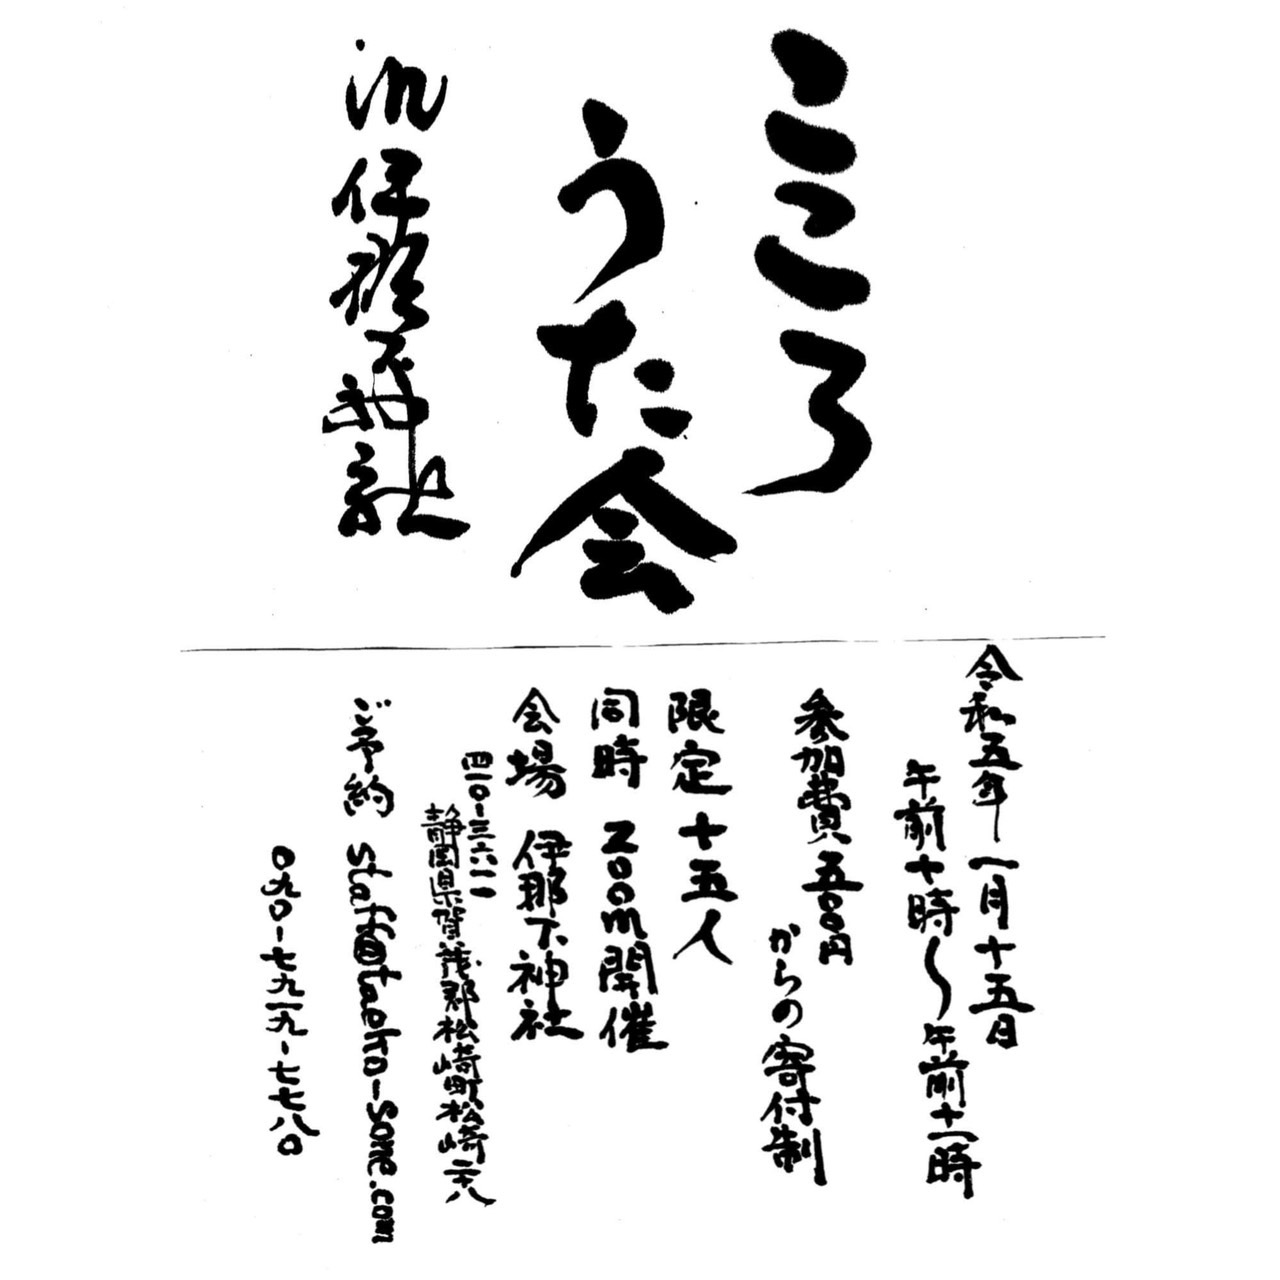 こころ
うた会
in 伊那下神社
令和五年一月十五日
午前十時〜午前十一時
参加費五〇〇円
からの寄付制
限定十五人
同時 zoom開催
会場 伊那下神社
四一〇-三六一一
静岡県賀茂郡松崎町松崎二八
ご予約 staff@taeko-some.com
〇九〇-七九一九-七七八〇